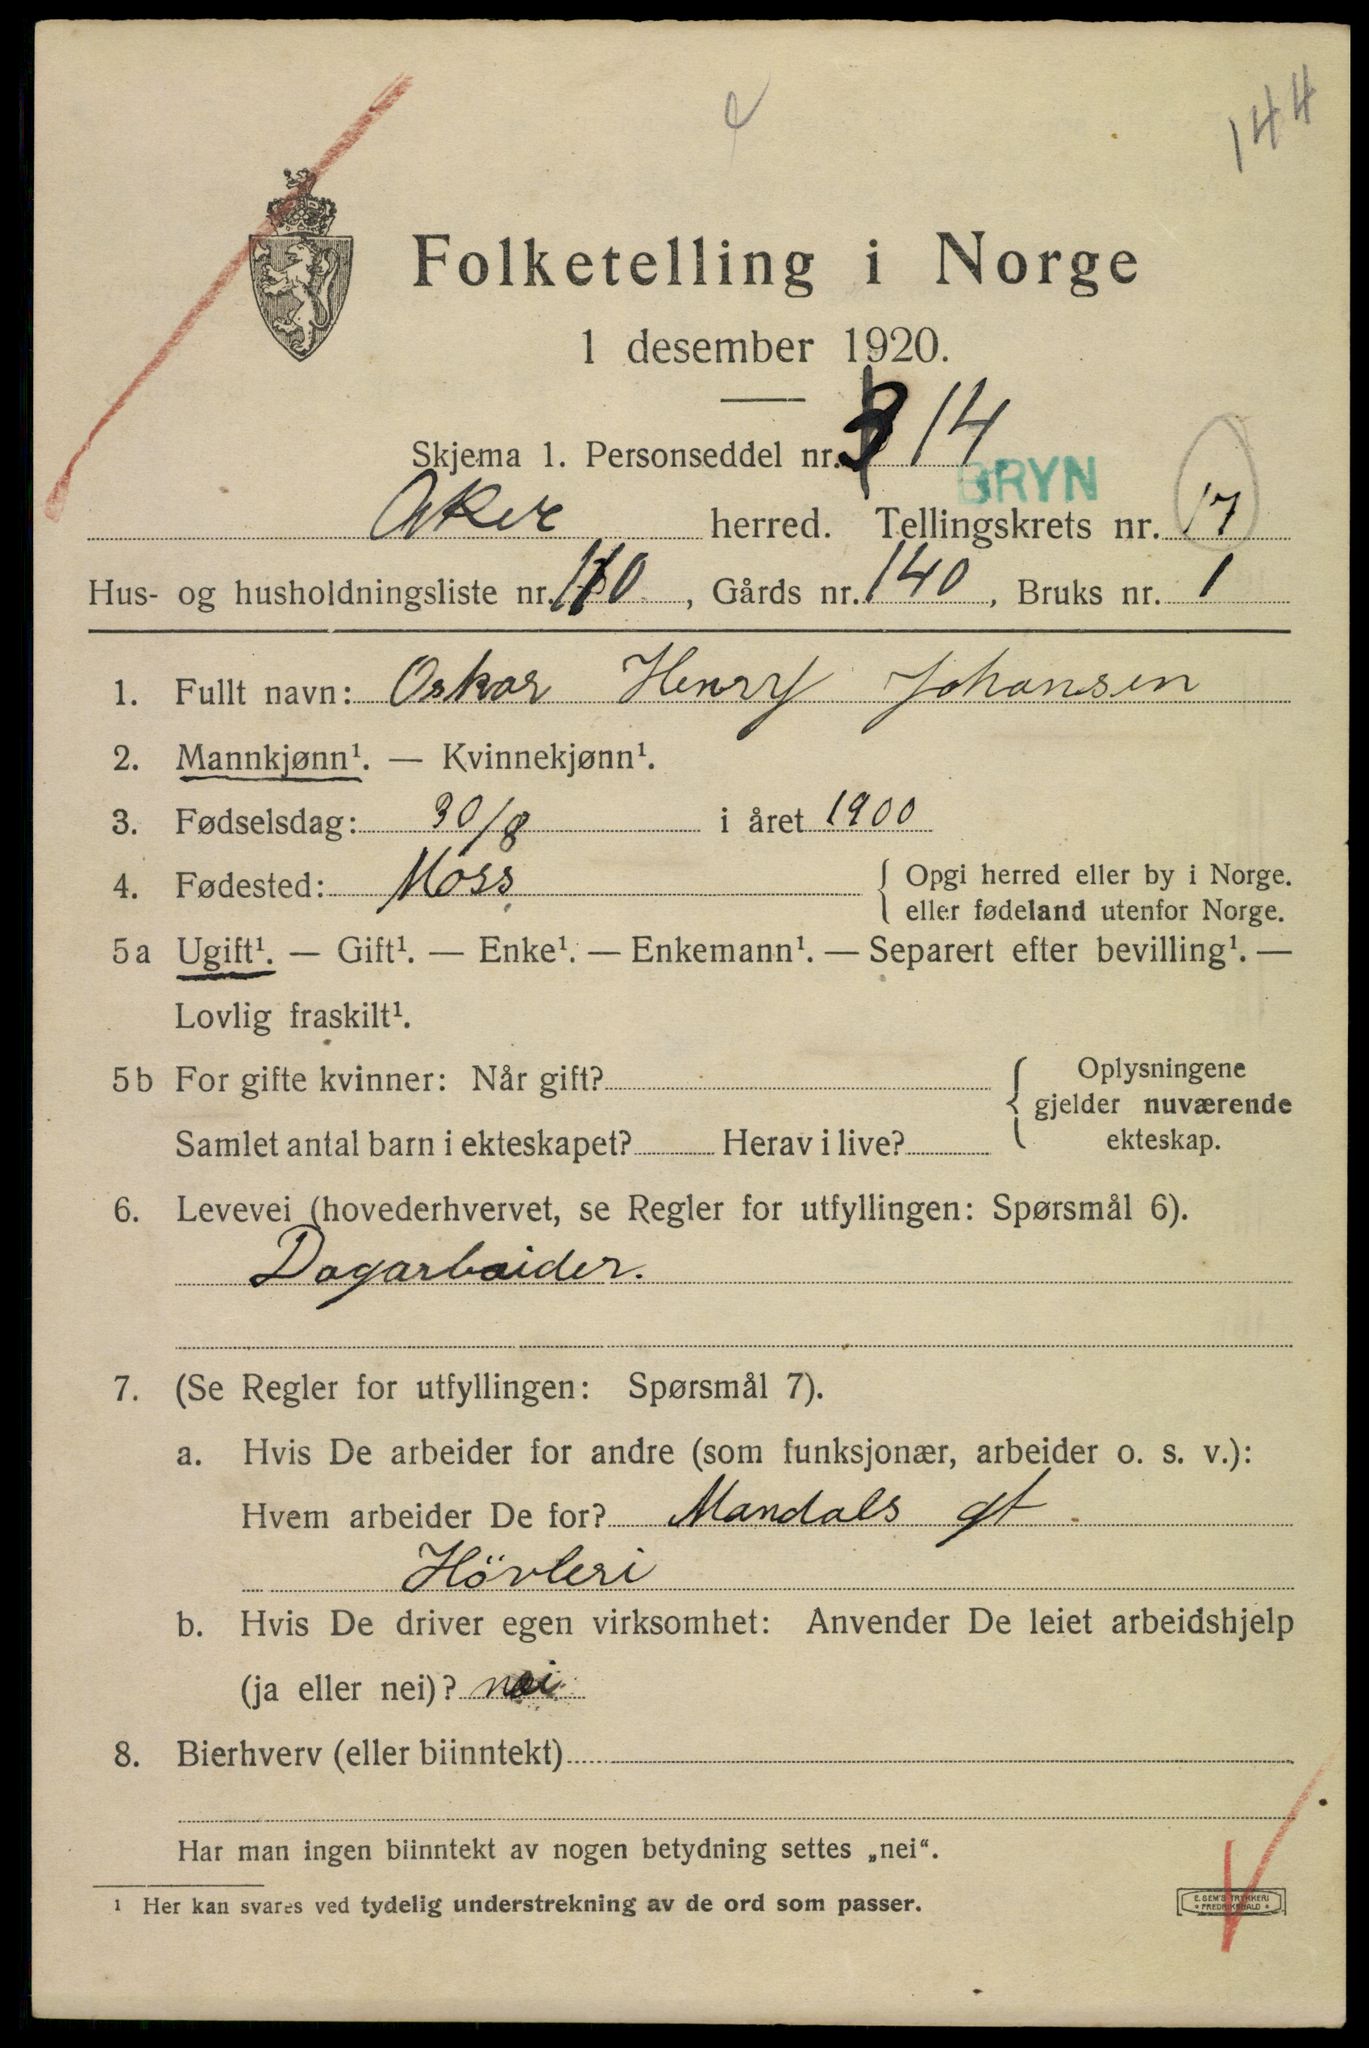 144
Folketelling i Norge
1 desember 1920.
Skjema 1. Personseddel nr. 14
BRYN
Aker herred. Tellingskrets nr. 17
Hus- og husholdningsliste nr. 110, Gårds nr. 140, Bruks nr. 1
1. Fullt navn: Oskar Henry Johansen
2. Mannkjønn¹. — Kvinnekjønn¹.
3. Fødselsdag: 30/8 i året 1900
4. Fødested: Moss { Opgi herred eller by i Norge.
eller fødeland utenfor Norge.
5a Ugift¹. — Gift¹. — Enke¹. — Enkemann¹. — Separert efter bevilling¹. —
Lovlig fraskilt¹.
5b For gifte kvinner: Når gift? { Oplysningene
gjelder nuværende
Samlet antal barn i ekteskapet? Herav i live? ekteskap.
6. Levevei (hovederhvervet, se Regler for utfyllingen: Spørsmål 6).
Dagarbaider.
7. (Se Regler for utfyllingen: Spørsmål 7).
a. Hvis De arbeider for andre (som funksjonær, arbeider o. s. v.):
Hvem arbeider De for? Mandals gt
Hövleri
b. Hvis De driver egen virksomhet: Anvender De leiet arbeidshjelp
(ja eller nei)? nei
8. Bierhverv (eller biinntekt)
Har man ingen biinntekt av nogen betydning settes „nei“.
¹ Her kan svares ved tydelig understrekning av de ord som passer.
E. SEM'S TRYKKERI
* FREDRIKSHALD *